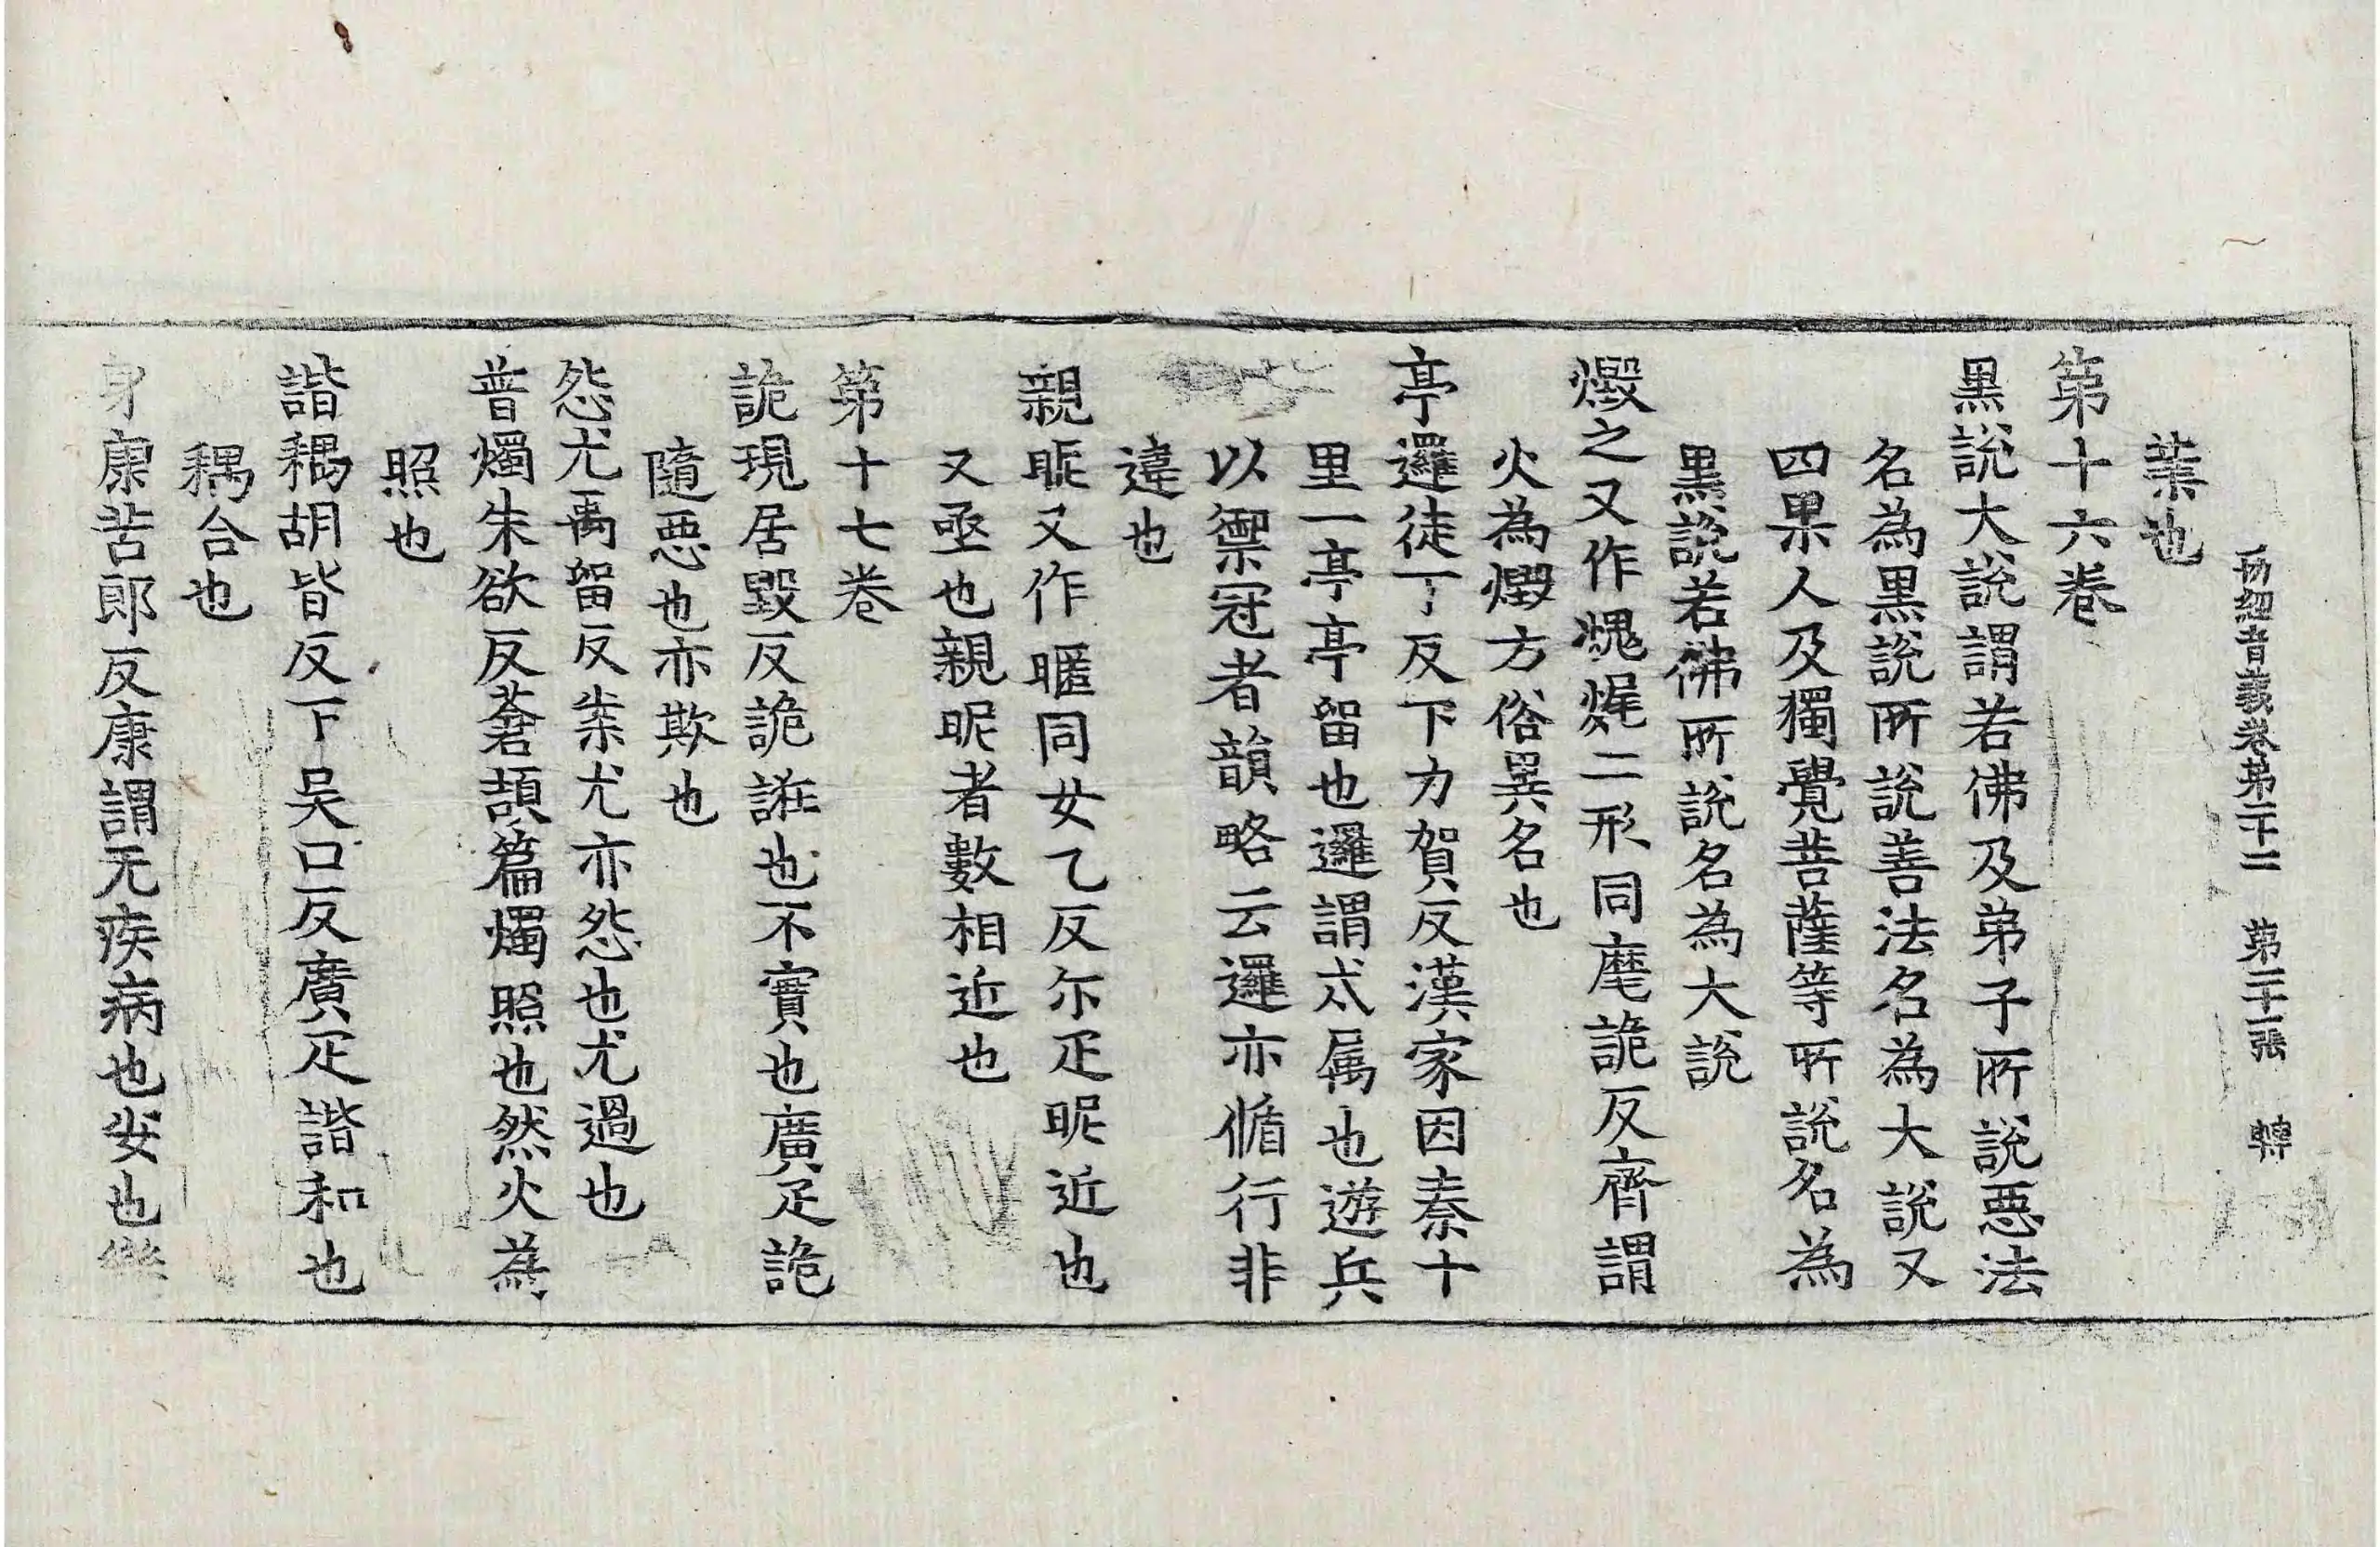 一切經音義卷第二十二 第二十一張 韓
業也
第十六卷
黑說大說謂若佛及弟子所說惡法
名為黑說所說善法名為大說又
四果人及獨覺菩薩等所說名為
黑說若佛所說名為大說
燬之又作㷄焜二形同麾詭反齊謂
火為燬方俗異名也
亭邏徒丁反下力賀反漢家因秦十
里一亭亭留也邏謂戍属也遊兵
以禦冠者韻略云邏亦循行非
違也
親昵又作暱同女乙反尒疋昵近也
又亟也親昵者數相近也
第十七卷
詭現居毀反詭誑也不實也廣疋詭
隨惡也亦欺也
怨尤禹留反案尤亦怨也尤過也
普燭朱欲反蒼頡篇燭照也然火為
照也
諧耦胡皆反下吳口反廣疋諧和也
耦合也
身康苦郎反康謂无疾病也安也樂